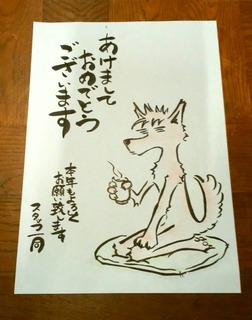 あけまして
おめでとう
ございます
本年もよろしく
お願い致します
スタッフ一同